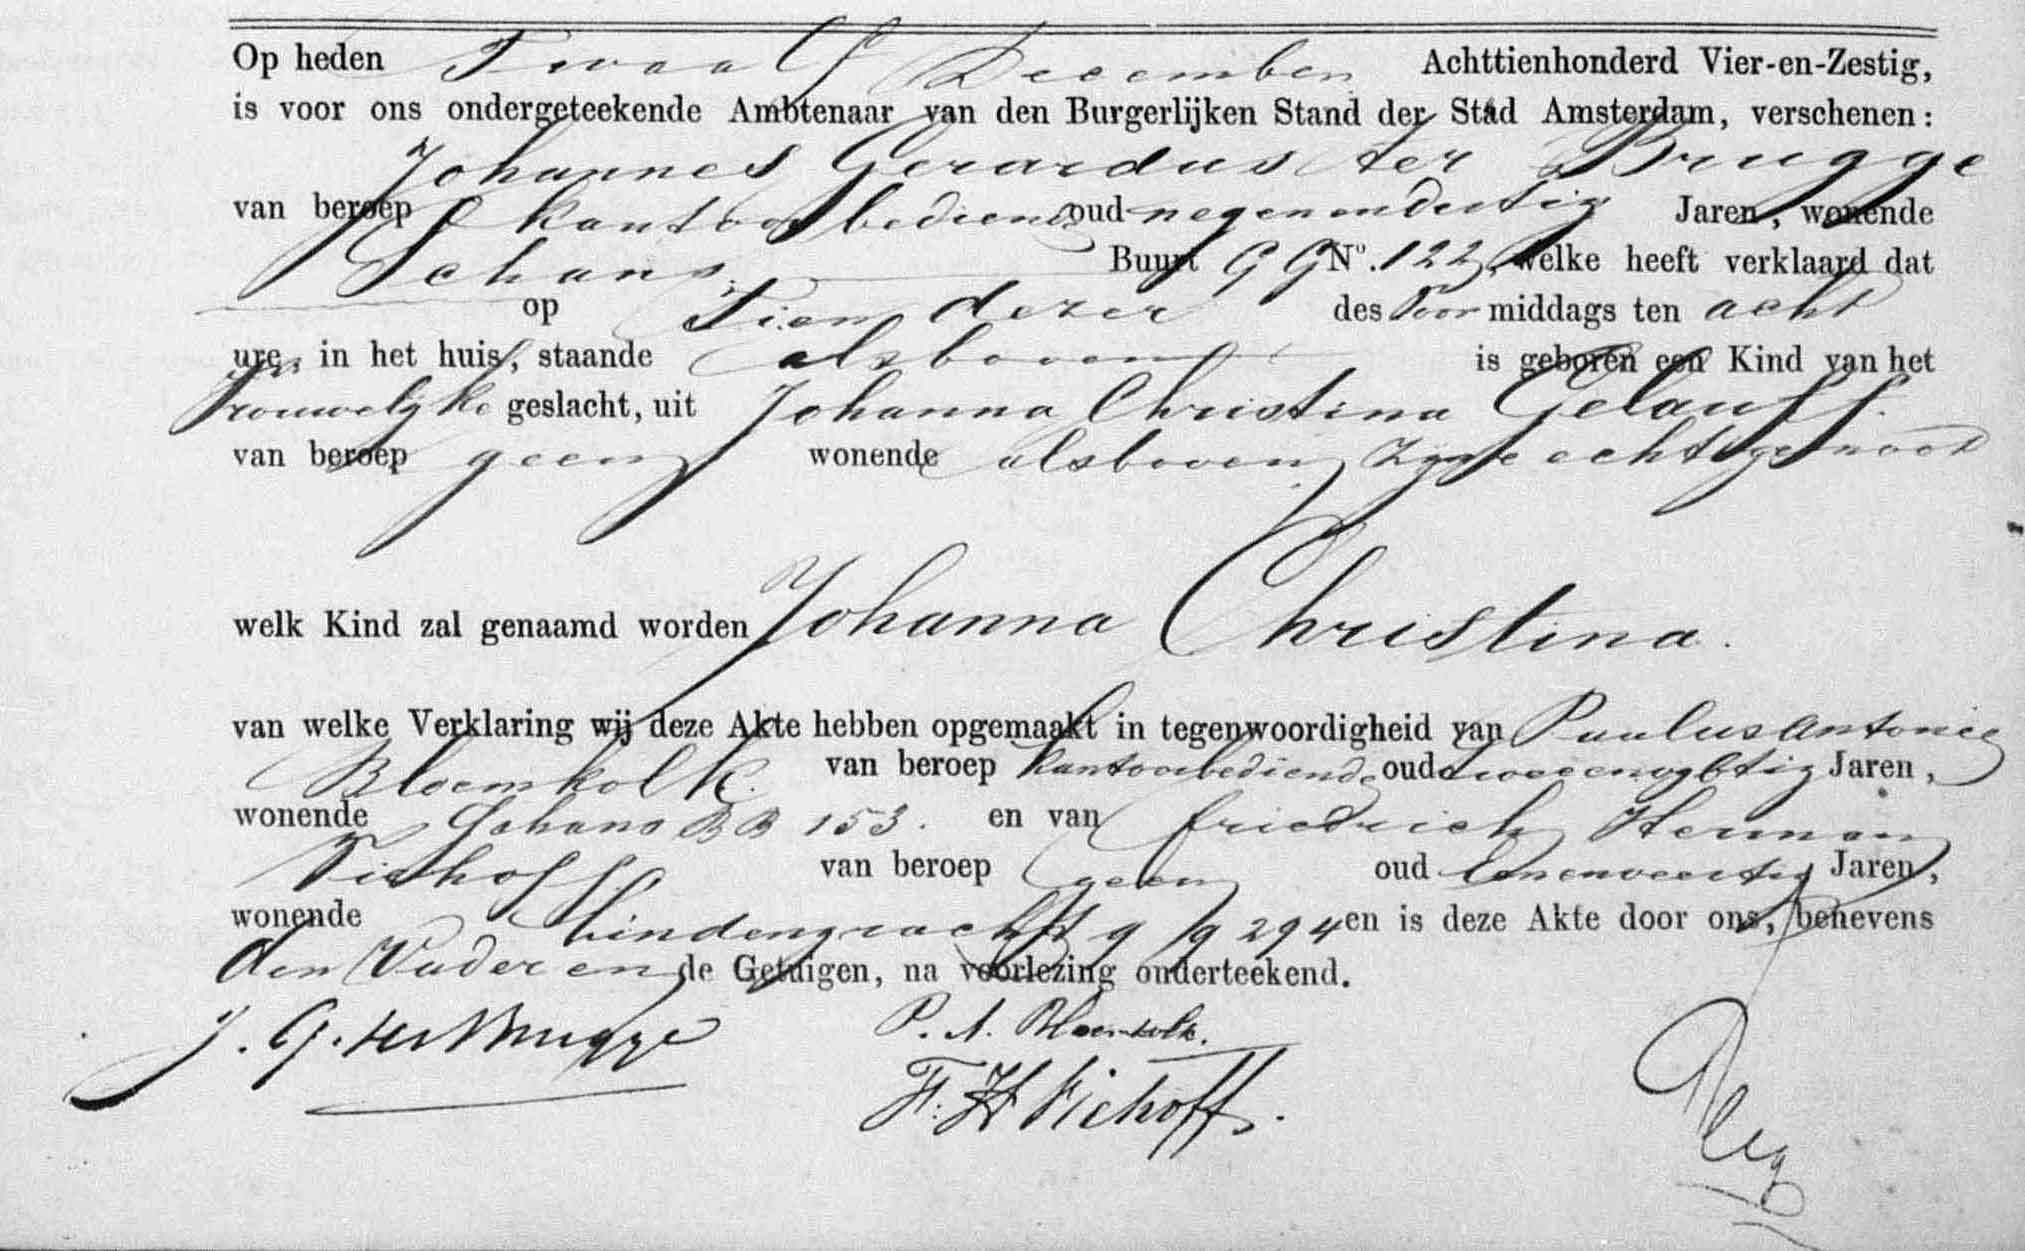 Op heden Twaalf December Achttienhonderd Vier-en-Zestig,
is voor ons ondergeteekende Ambtenaar van den Burgerlijken Stand der Stad Amsterdam, verschenen:
Johannes Gerardus ter Brugge
van beroep kantoorbediende oud negenendertig Jaren, wonende
Schans Buurt GG No. 122, welke heeft verklaard dat
op Tien dezer des Voor middags ten acht
ure, in het huis, staande alsboven is geboren een Kind van het
Vrouwelyke geslacht, uit Johanna Christina Gelauff
van beroep geen wonende alsboven zyne echtgenoot
welk Kind zal genaamd worden Johanna Christina.
van welke Verklaring wij deze Akte hebben opgemaakt in tegenwoordigheid van Paulus Antonie
Bloemkolk. van beroep kantoorbediende oud Jaren,
wonende Schans BB 153. en van Friedrich Herman
Viehoff van beroep geen oud eenenveertig Jaren,
wonende Lindengracht 294 en is deze Akte door ons, benevens
den Vader en de Getuigen, na voorlezing onderteekend.
J. G. ter Brugge P. A. Bloemkolk.
F. H Viehoff.